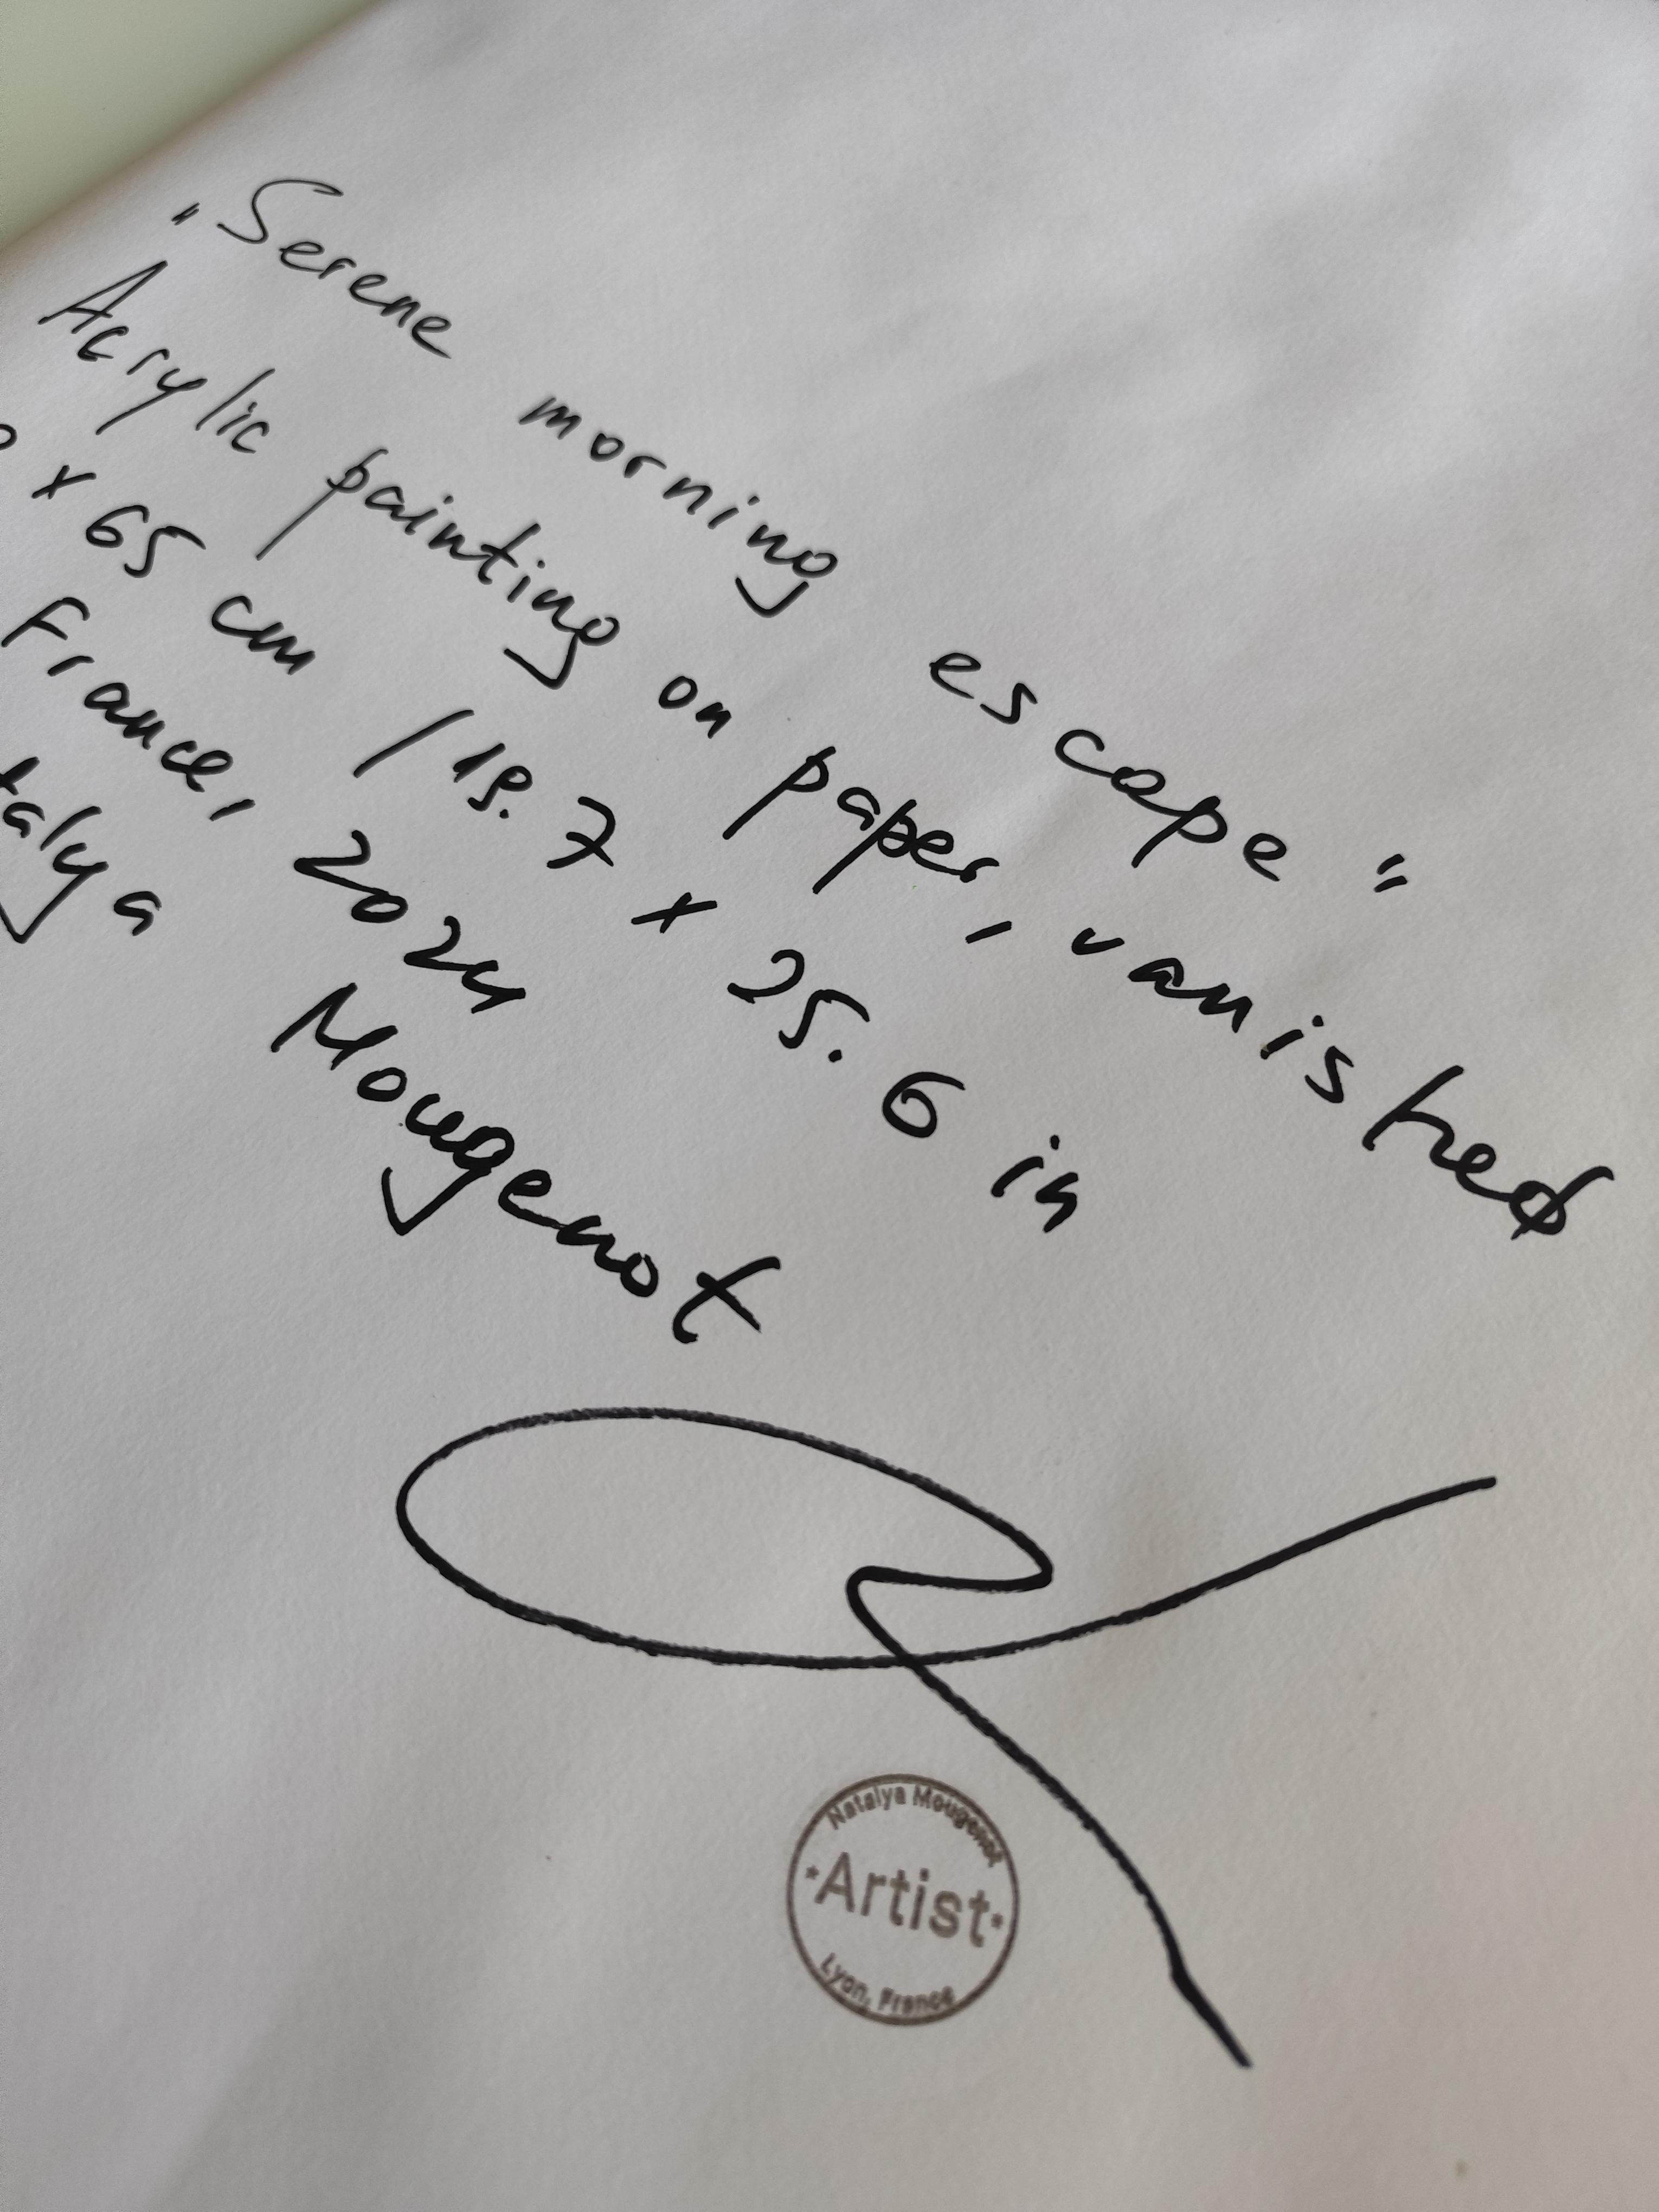 "Serene morning escape"
Acrylic painting on paper, vanished
x 65 cm / 19.7 x 25.6 in
France, 2024
talya Mougenot
Natalya Mougenot
*Artist*
Lyon, France